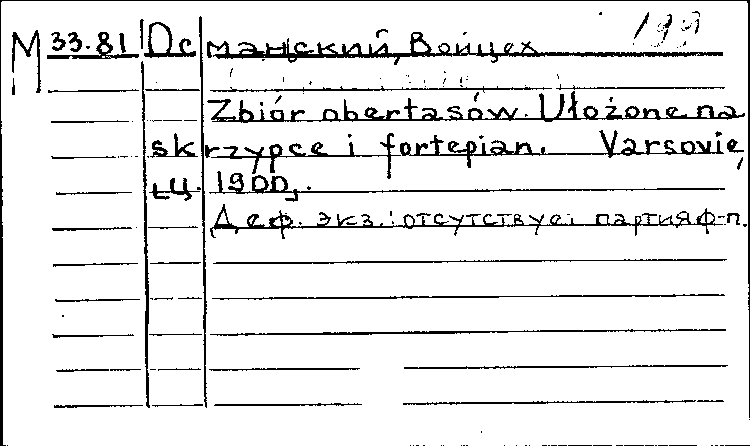 М 33.81 Османский, Войцех 199
Zbiór obertasów. Ułożone na
skrzypce i fortepian. Varsovie,
ц. 1900,.
Деф. экз.: отсутствует партия ф-п.